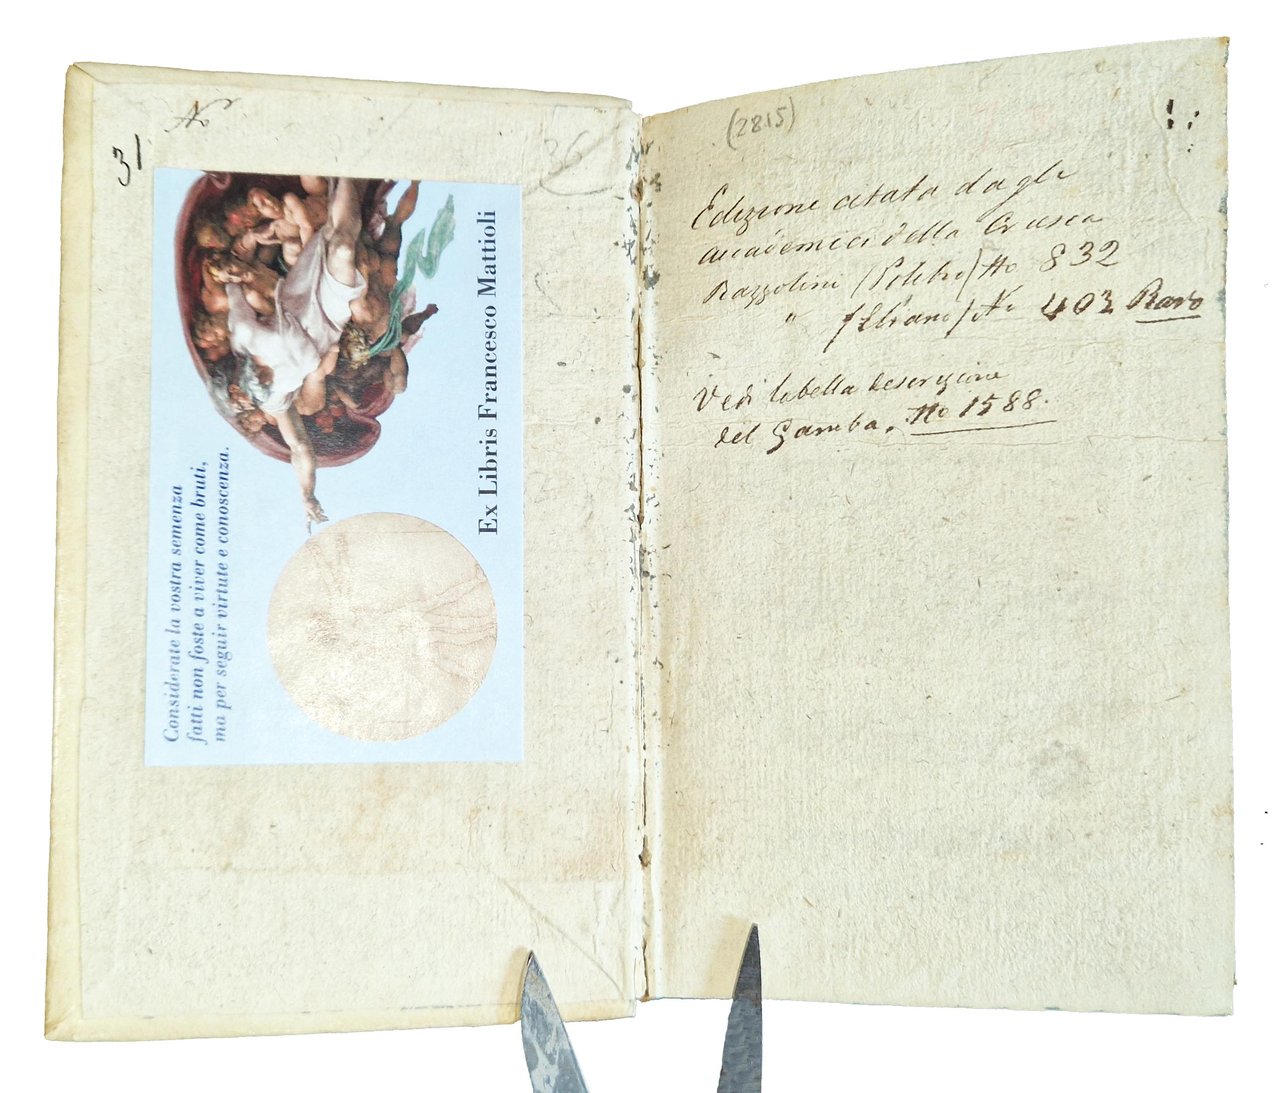 No
31
36
Considerate la vostra semenza
fatti non foste a viver come bruti,
ma per seguir virtute e conoscenza.
Ex Libris Francesco Mattioli
(2815)
Edizione citata dagli
accademici della Crusca
Razzolini / / No 832
" / / No 403 Raro
Vedi la bella descrizione
del Gamba. No 1588.